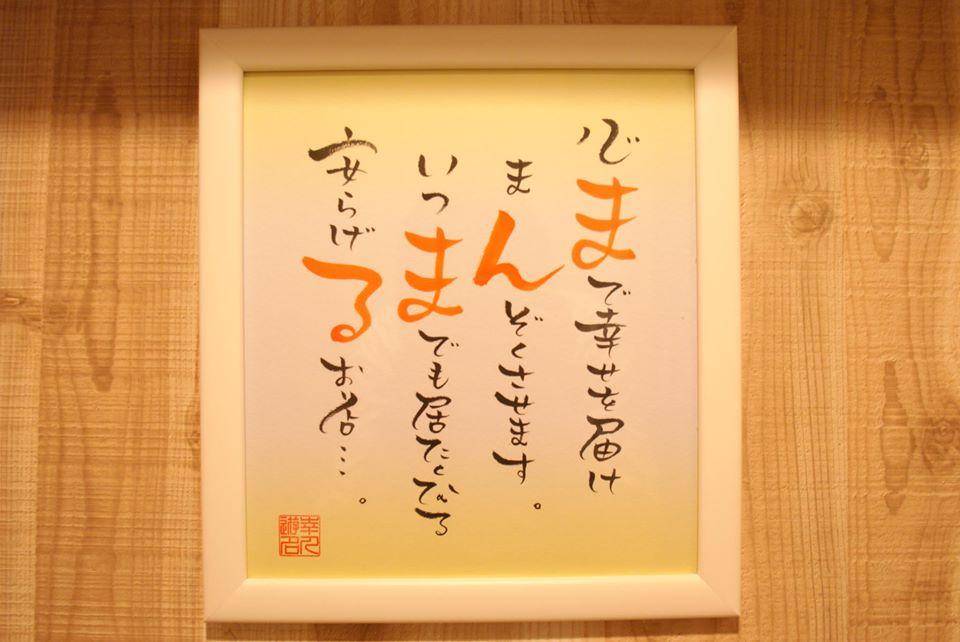 心まで幸せを届け
まんぞくさせます。
いつまでも居たくなる
安らげるお店…。